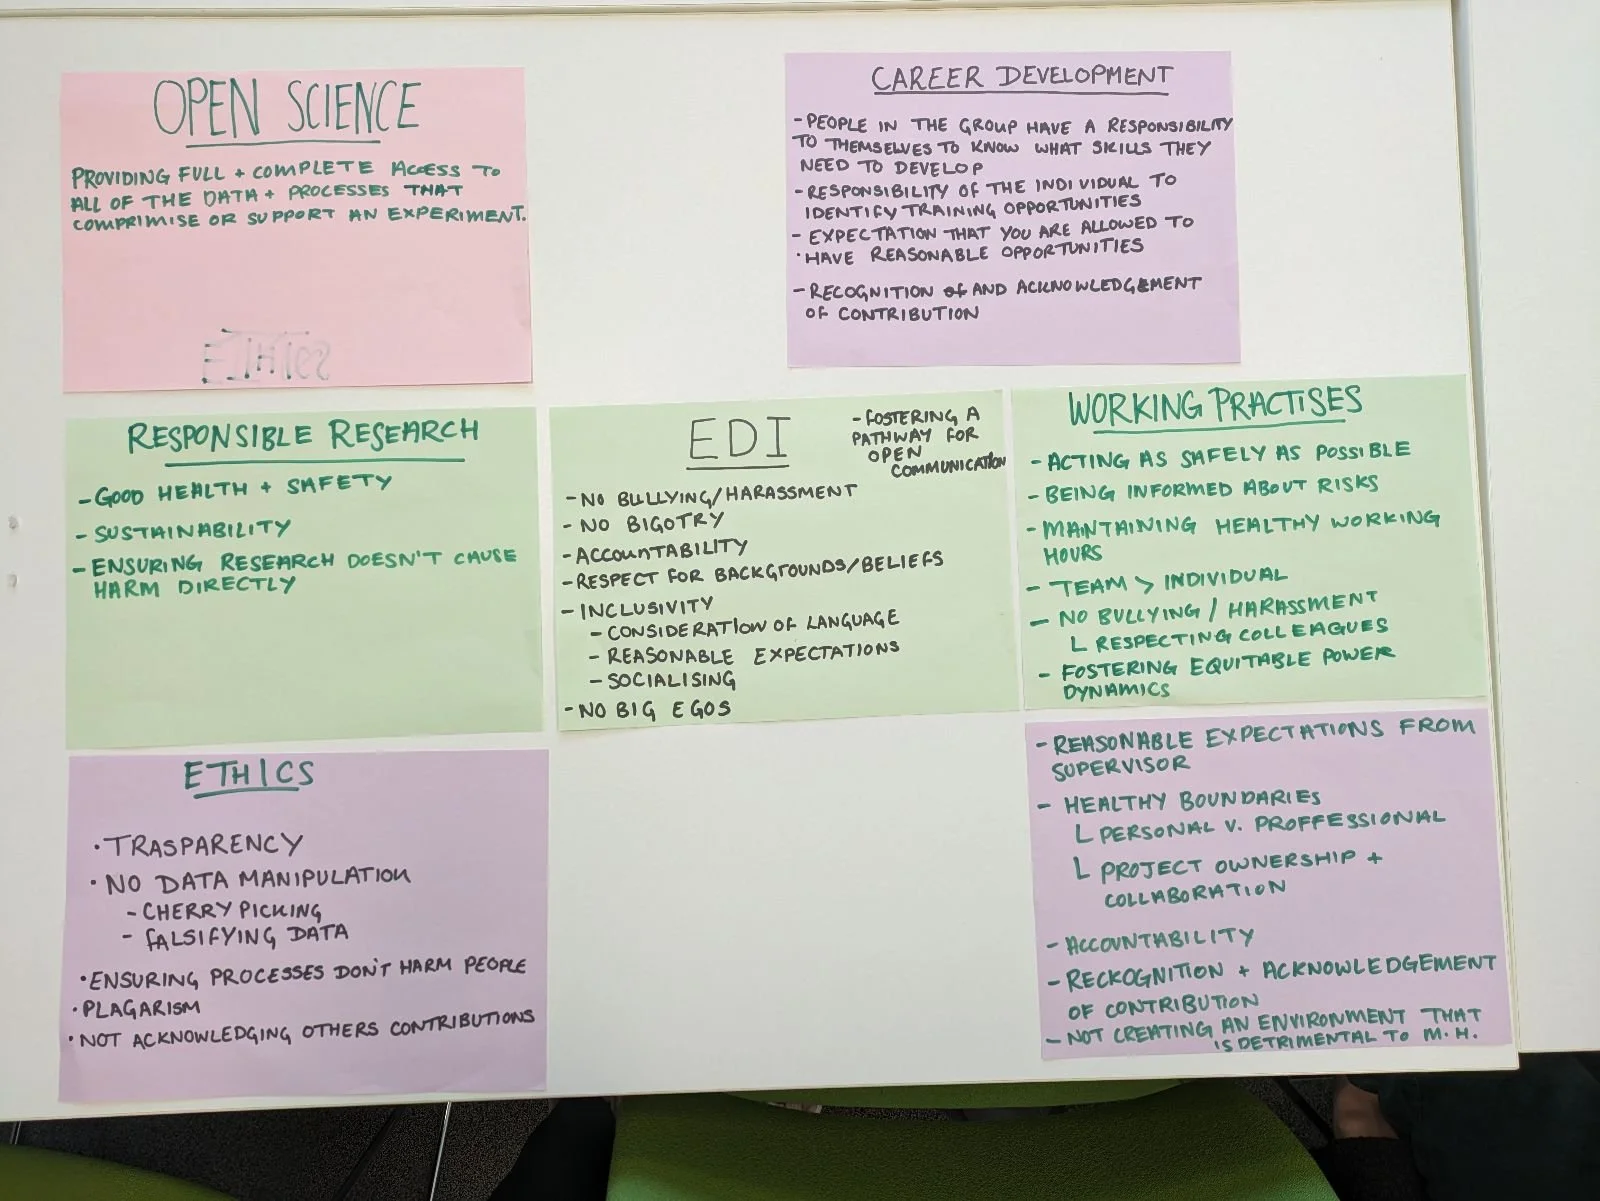 OPEN SCIENCE
PROVIDING FULL + COMPLETE ACCESS TO
ALL OF THE DATA + PROCESSES THAT
COMPRIMISE OR SUPPORT AN EXPERIMENT.
ETHICS
CAREER DEVELOPMENT
- PEOPLE IN THE GROUP HAVE A RESPONSIBILITY
TO THEMSELVES TO KNOW WHAT SKILLS THEY
NEED TO DEVELOP
- RESPONSIBILITY OF THE INDIVIDUAL TO
IDENTIFY TRAINING OPPORTUNITIES
- EXPECTATION THAT YOU ARE ALLOWED TO
· HAVE REASONABLE OPPORTUNITIES
- RECOGNITION of AND ACKNOWLEDGEMENT
OF CONTRIBUTION
RESPONSIBLE RESEARCH
- GOOD HEALTH + SAFETY
- SUSTAINABILITY
- ENSURING RESEARCH DOESN'T CAUSE
HARM DIRECTLY
EDI
- FOSTERING A
PATHWAY FOR
OPEN
COMMUNICATION
- NO BULLYING/HARASSMENT
- NO BIGOTRY
- ACCOUNTABILITY
- RESPECT FOR BACKGROUNDS/BELIEFS
- INCLUSIVITY
- CONSIDERATION OF LANGUAGE
- REASONABLE EXPECTATIONS
- SOCIALISING
- NO BIG EGOS
WORKING PRACTISES
- ACTING AS SAFELY AS POSSIBLE
- BEING INFORMED ABOUT RISKS
- MANTAINING HEALTHY WORKING
HOURS
- TEAM > INDIVIDUAL
- NO BULLYING / HARASSMENT
L RESPECTING COLLEAGUES
- FOSTERING EQUITABLE POWER
DYNAMICS
- REASONABLE EXPECTATIONS FROM
SUPERVISOR
- HEALTHY BOUNDARIES
L PERSONAL V. PROFFESSIONAL
L PROJECT OWNERSHIP +
COLLABORATION
- ACCOUNTABILITY
- RECKOGNITION + ACKNOWLEDGEMENT
OF CONTRIBUTION
- NOT CREATING AN ENVIRONMENT THAT
IS DETRIMENTAL TO M.H.
ETHICS
· TRASPARENCY
· NO DATA MANIPULATION
- CHERRY PICKING
- FALSIFYING DATA
· ENSURING PROCESSES DON'T HARM PEOPLE
· PLAGARISM
· NOT ACKNOWLEDGING OTHERS CONTRIBUTIONS